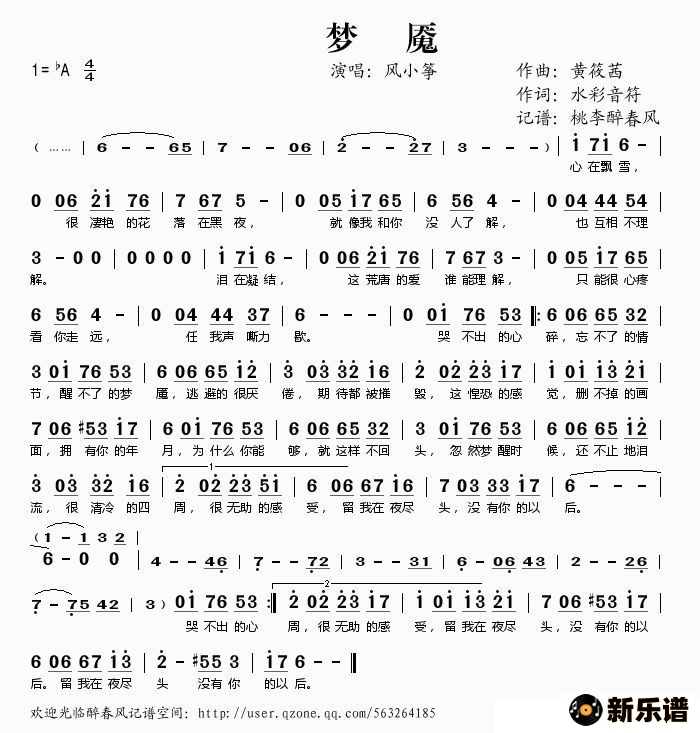 梦 魇
1=♭A 4/4 演唱：风小筝 作曲：黄筱茜
作词：水彩音符
记谱：桃李醉春风
（ …… | 6 - - 65 | 7 - - 06 | 2 - - 27 | 3 - - - ） | i 7i 6 - |
心 在飘 雪，
0 06 2i 76 | 7 67 5 - | 0 05 i7 65 | 6 56 4 - | 0 04 44 54 |
很 凄艳 的花 落 在黑 夜， 就 像我 和你 没 人了 解， 也 互相 不理
3 - 0 0 | 0 0 0 0 | i 7i 6 - | 0 06 2i 76 | 7 67 3 - | 0 05 i7 65 |
解。 泪 在凝 结， 这 荒唐 的爱 谁 能理 解， 只 能很 心疼
6 56 4 - | 0 04 44 37 | 6 - - - | 0 0i 76 53 |: 6 06 65 32 |
看 你走 远， 任 我声 嘶力 歇。 哭 不出 的心 碎，忘 不了 的情
3 0i 76 53 | 6 06 65 i7 | 3 03 32 i6 | 2 02 23 27 | 7 02 23 i7 |
节，醒 不了 的梦 魇，逃 避的 很厌 倦，期 待都 被摧 毁，这 惶恐 的感 觉，删 不掉 的画
7 06 #53 i7 | 6 0i 76 53 | 6 06 65 32 | 3 0i 76 53 | 6 06 65 i2 |
面，拥 有你 的年 月，为 什么 你能 够，就 这样 不回 头，忽 然梦 醒时 候，还 不止 地泪
1
3 03 32 i6 | 2 02 23 5i | 6 06 06 i7 | 7 03 33 i7 | 6 - - - |
流，很 清冷 的四 周，很 无助 的感 受，留 我在 夜尽 头，没 有你 的以 后。
（ 1 - 1 3 2 ）
6 - 0 0 | 4 - - 46 | 7 - - 72 | 3 - - 31 | 6 - 06 43 | 2 - - 26 |
2
7 - 75 42 | 3 ） 0i 76 53 :| 2 02 23 i7 | i 0i i3 2i | 7 06 #53 i7 |
哭 不出 的心 周，很 无助 的感 受，留 我在 夜尽 头，没 有你 的以
6 06 67 i3 | 2 - #55 3 | i7 6 - - ‖
后。留 我在 夜尽 头 没有 你 的以 后。
欢迎光临醉春风记谱空间：http://user.qzone.qq.com/563264185
新乐谱